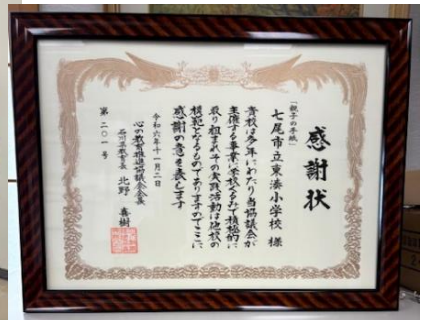 感謝状
「親子の手紙」
七尾市立東湊小学校 様
貴校は多年にわたり当協議会が
主催する事業に学校ぐるみで積極的に
取り組まれその実践活動は他校の
模範となるものでありますのでここに
感謝の意を表します
令和六年十一月二日
心の教育推進協議会会長
石川県教育長 北野 喜樹
第二〇一号